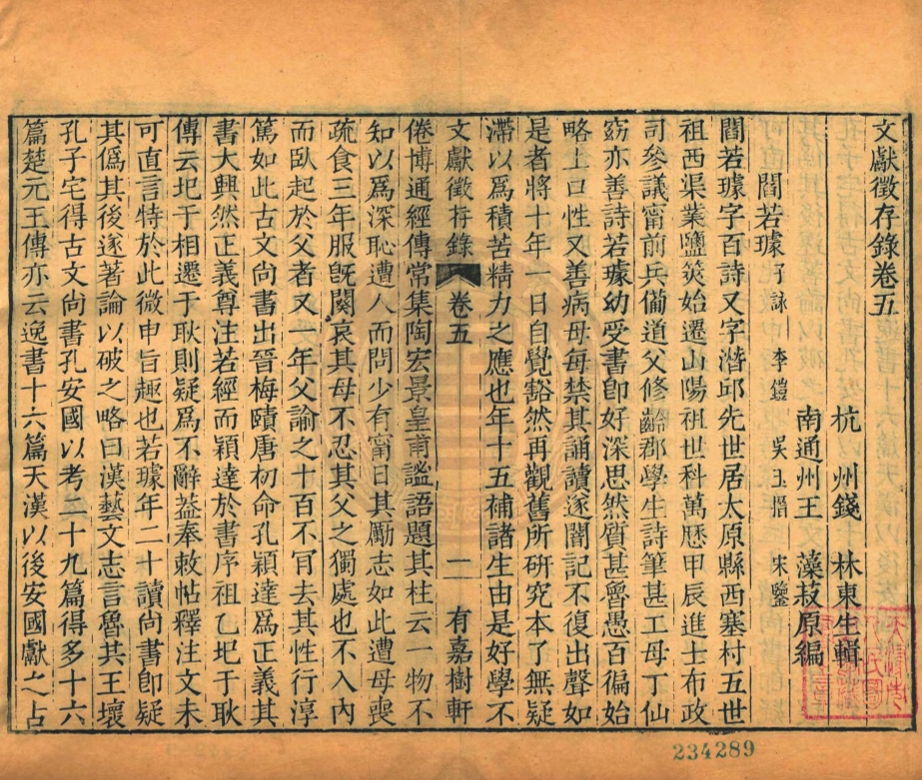 文獻徵存錄卷五
杭州錢 林東生輯
南通州王 藻菽原編
閻若璩 子詠 李鎧 吳玉搢 宋鑒
閻若璩字百詩又字潛邱先世居太原縣西塞村五世
祖西渠業鹽筴始遷山陽祖世科萬歷甲辰進士布政
司參議甯前兵備道父修齡郡學生詩筆甚工母丁仙
窈亦善詩若璩幼受書即好深思然質甚魯愚百徧始
略上口性又善病母每禁其誦讀遂闇記不復出聲如
是者將十年一日自覺豁然再觀舊所研究本了無疑
滯以爲積苦精力之應也年十五補諸生由是好學不
文獻徵存錄 卷五 二 有嘉樹軒
倦博通經傳常集陶宏景皇甫謐語題其柱云一物不
知以爲深恥遭人而問少有甯日其勵志如此遭母喪
疏食三年服旣闋哀其母不忍其父之獨處也不入內
而臥起於父者又一年父諭之十百不肎去其性行淳
篤如此古文尚書出晉梅賾唐初命孔穎達爲正義其
書大興然正義尊注若經而穎達於書序祖乙圯于耿
傳云圯于相遷于耿則疑爲不辭葢奉敕帖釋注文未
可直言特於此微申旨趣也若璩年二十讀尚書即疑
其僞其後遂著論以破之略曰漢藝文志言魯共王壞
孔子宅得古文尚書孔安國以考二十九篇得多十六
篇楚元王傳亦云逸書十六篇天漢以後安國獻之占
234289